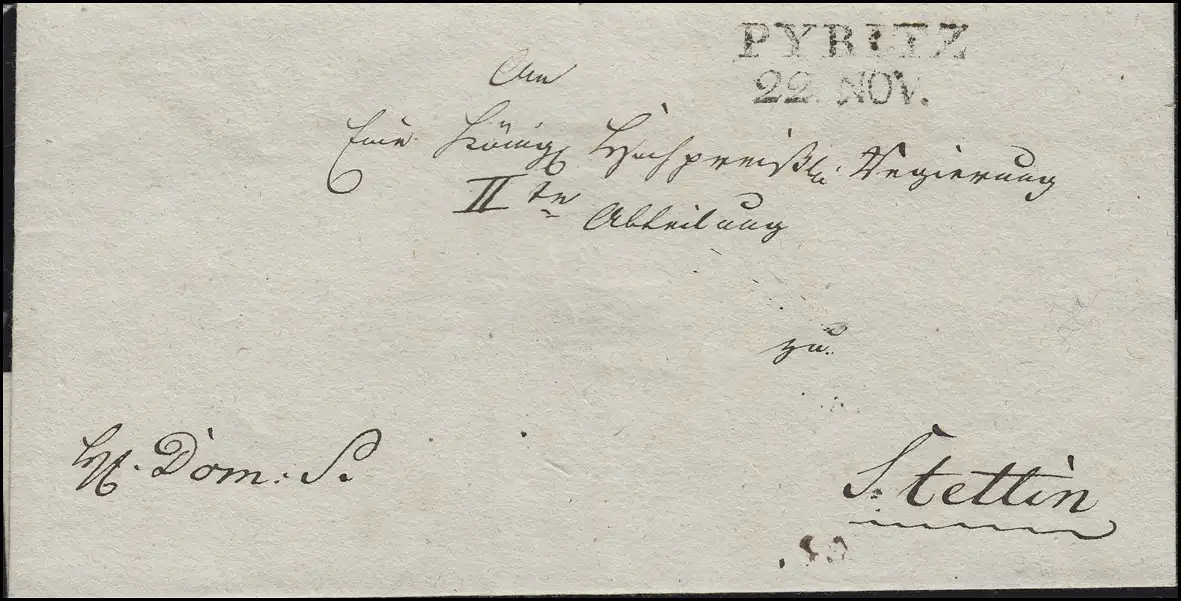 PYRITZ
22. NOV.
An
Eine Königl. Hochpreißl. Regierung
II te Abteilung
zu
H. Dom. S.
Stettin